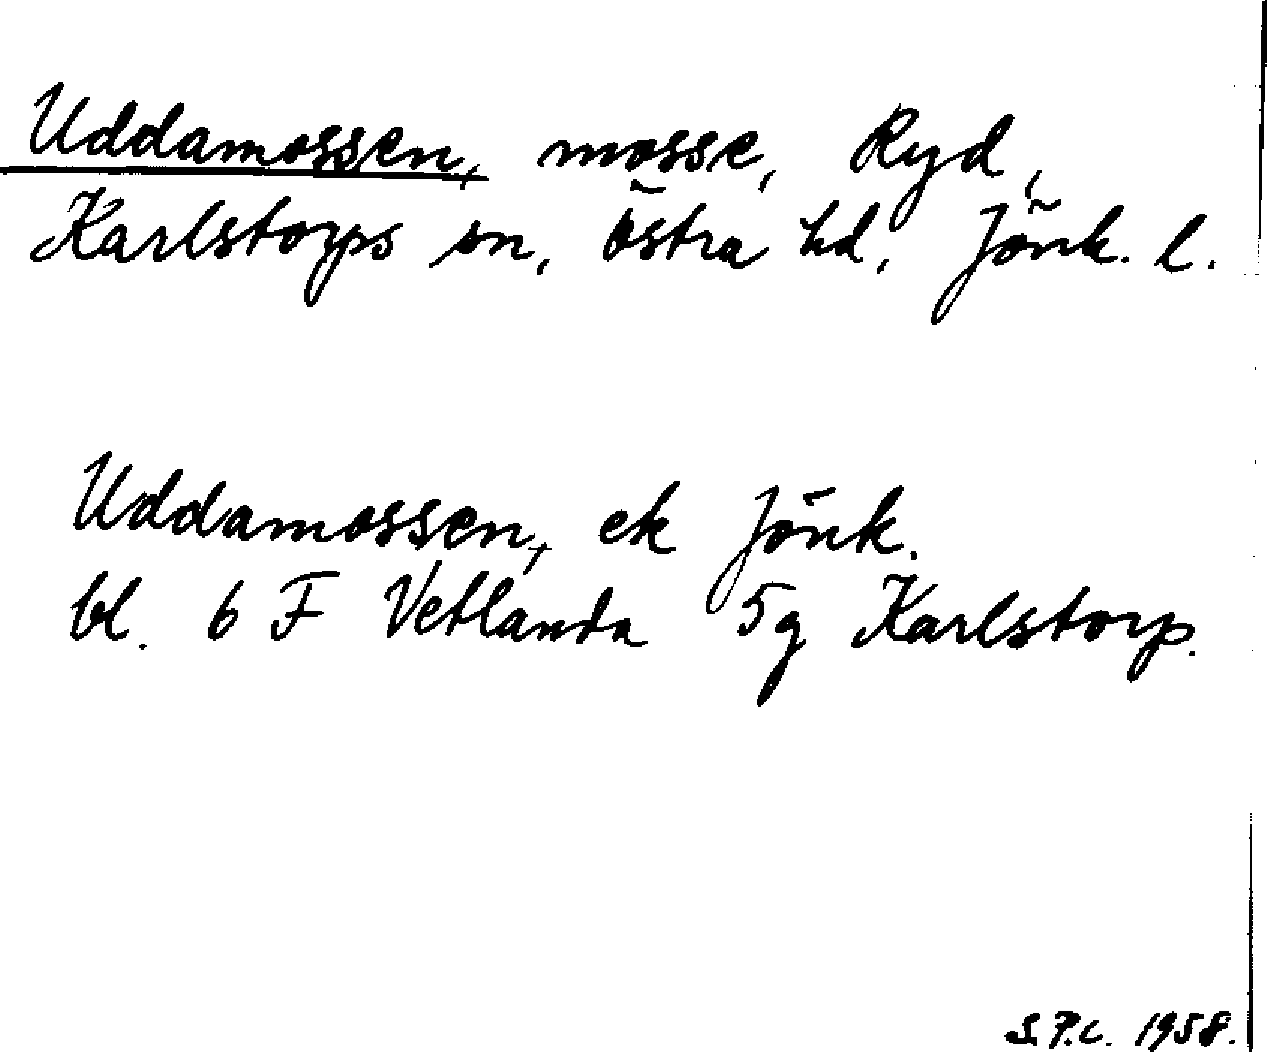 Uddamossen, mosse, Ryd,
Karlstorps sn, Östra hd, Jönk. l.
Uddamossen, ek Jönk.
bl. 6 F Vetlanda 5g Karlstorp.
S.P.C. 1958.